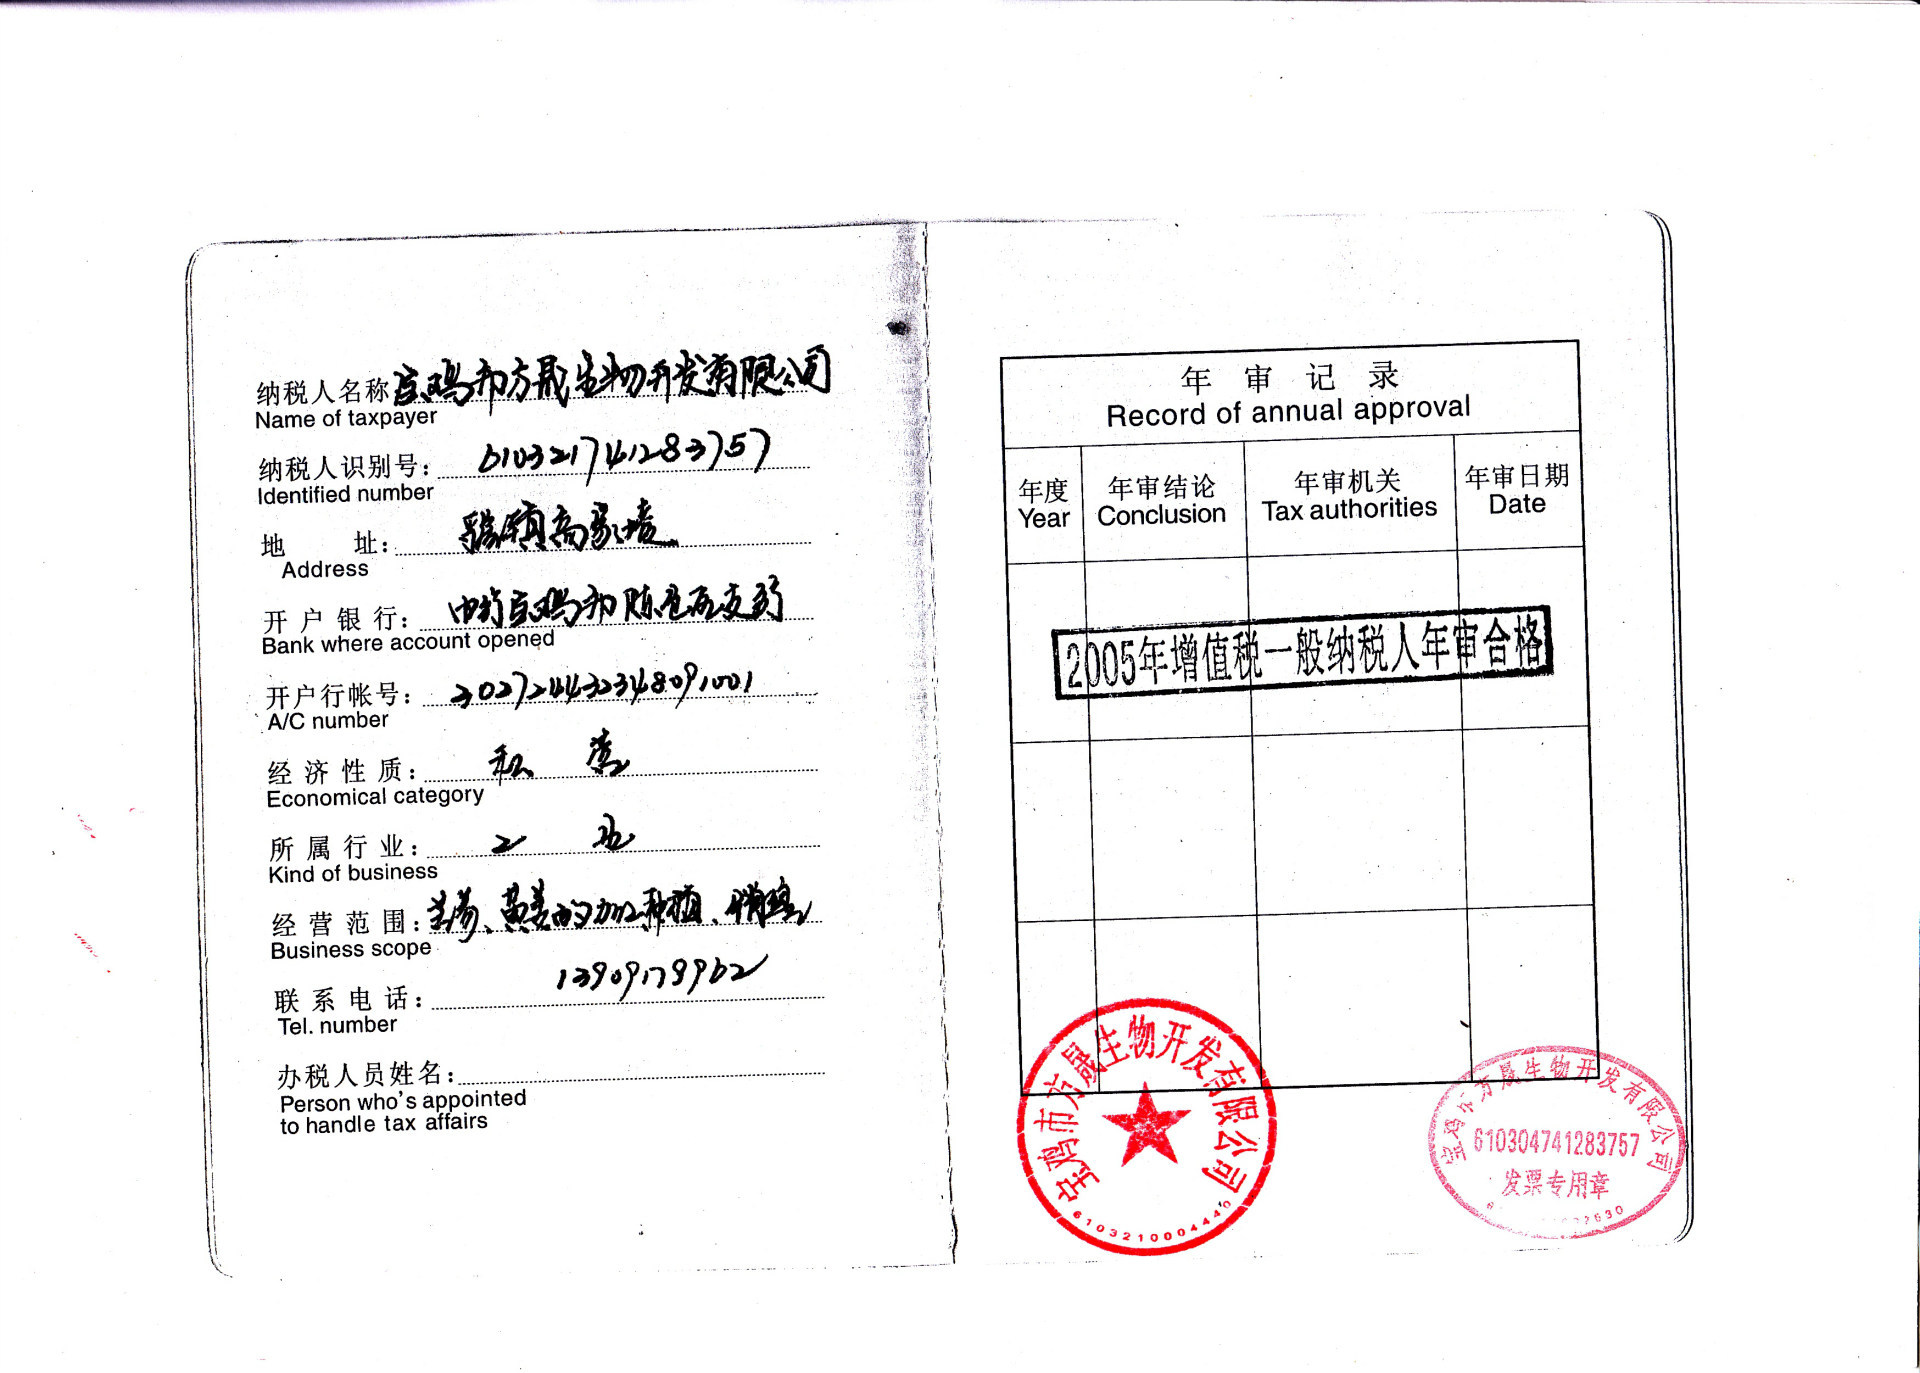 纳税人名称 宝鸡市方晟生物开发有限公司
Name of taxpayer
纳税人识别号： 610321741283757
Identified number
地 址： 镇高家塬
Address
开户银行： 中行宝鸡市陈仓区支行
Bank where account opened
开户行帐号： 302724432348091001
A/C number
经济性质： 私营
Economical category
所属行业： 工业
Kind of business
经营范围： 黄姜的加工种植、销售
Business scope
联系电话： 13909179962
Tel. number
办税人员姓名：
Person who's appointed
to handle tax affairs
年审记录
Record of annual approval
年度 年审结论 年审机关 年审日期
Year Conclusion Tax authorities Date
2005年增值税一般纳税人年审合格
宝鸡市方晟生物开发有限公司
6103210004440
宝鸡市方晟生物开发有限公司
610304741283757
发票专用章